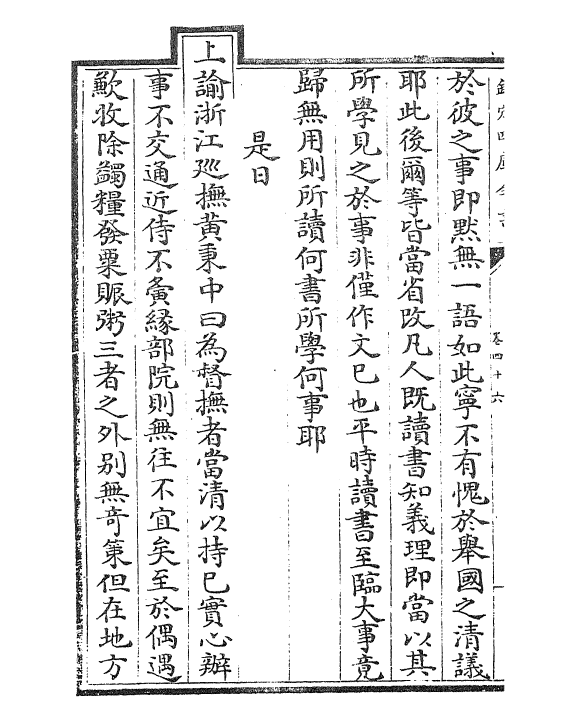 於彼之事即默無一語如此寧不有愧於舉國之清議
耶此後爾等皆當省改凡人既讀書知義理即當以其
所學見之於事非僅作文已也平時讀書至臨大事竟
歸無用則所讀何書所學何事耶
是日
上諭浙江巡撫黃秉中曰為督撫者當清以持已實心辦
事不交通近侍不夤緣部院則無往不宜矣至於偶遇
歉收除蠲糧發粟賑粥三者之外别無奇策但在地方
卷四十六